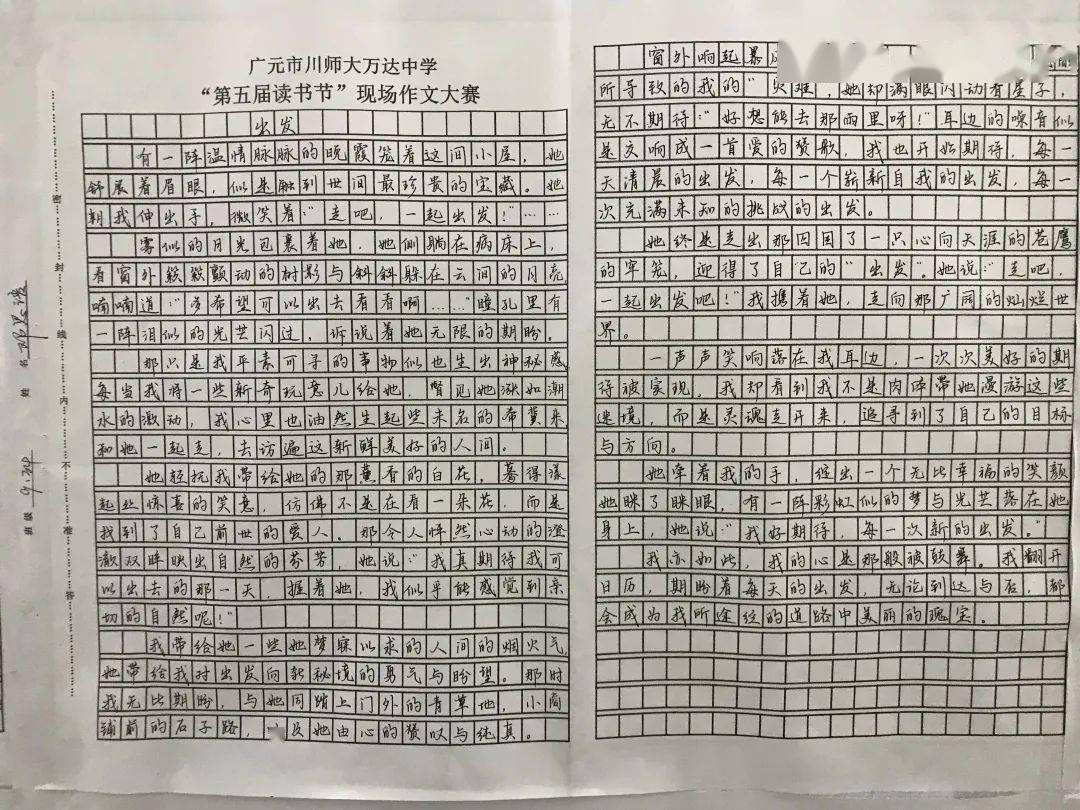 广元市川师大万达中学
“第五届读书节”现场作文大赛
出发
有一阵温情脉脉的晚霞笼着这间小屋，她
舒展着眉眼，似是融到世间最珍贵的宝藏。她
朝我伸出手，微笑着：“走吧，一起出发！”……
雾似的月光包裹着她，她侧躺在病床上，
看窗外簌簌颤动的树影与斜斜躲在云间的月亮
喃喃道：“多希望可以出去看看啊……”瞳孔里有
一阵泪似的光芒闪过，诉说着她无限的期盼。
那只是我平素可寻的事物似也生出神秘感，
每当我将一些新奇玩意儿给她，瞥见她涨如潮
水的激动，我心里也油然生起些未名的希冀来
和她一起走，去访遍这新鲜美好的人间。
她轻抚我带给她的那薰香的白花，蓦得漾
起丝惊喜的笑意，仿佛不是在看一朵花，而是
找到了自己前世的爱人。那令人怦然心动的澄
澈双眸映出自然的芬芳，她说：“我真期待我可
以出去的那一天，握着她，我似乎能感觉到亲
切的自然呢！”
我带给她一些她梦寐以求的人间的烟火气，
她带给我对出发向新秘境的勇气与盼望。那时
我无比期盼，与她同踏上门外的青草地，小商
铺前的石子路，以及她由心的赞叹与纯真。
窗外响起暴
所导致的我的“灾难，她却满眼闪动有星子，
无不期待：“好想能去那雨里呀！”耳边的噪音似
是交响成一首爱的赞歌，我也开始期待，每一
天清晨的出发，每一个崭新自我的出发，每一
次充满未知的挑战的出发。
她终是走出那囚困了一只心向天涯的苍鹰
的牢笼，迎得了自己的“出发”。她说：“走吧，
一起出发吧！”我携着她，走向那广阔的灿烂世
界。
一声声笑响落在我耳边，一次次美好的期
待被实现，我却看到我不是肉体带她漫游这些
迷境，而是灵魂走开来，追寻到了自己的目标
与方向。
她牵着我的手，绽出一个无比幸福的笑颜
她眯了眯眼，有一阵彩虹似的梦与光芒落在她
身上，她说：“我好期待，每一次新的出发。”
我亦如此，我的心是那般被鼓舞。我翻开
日历，期盼着每天的出发，无论到达与否，都
会成为我所途经的道路中美丽的瑰宝。
密封线内不准答
姓名
班级